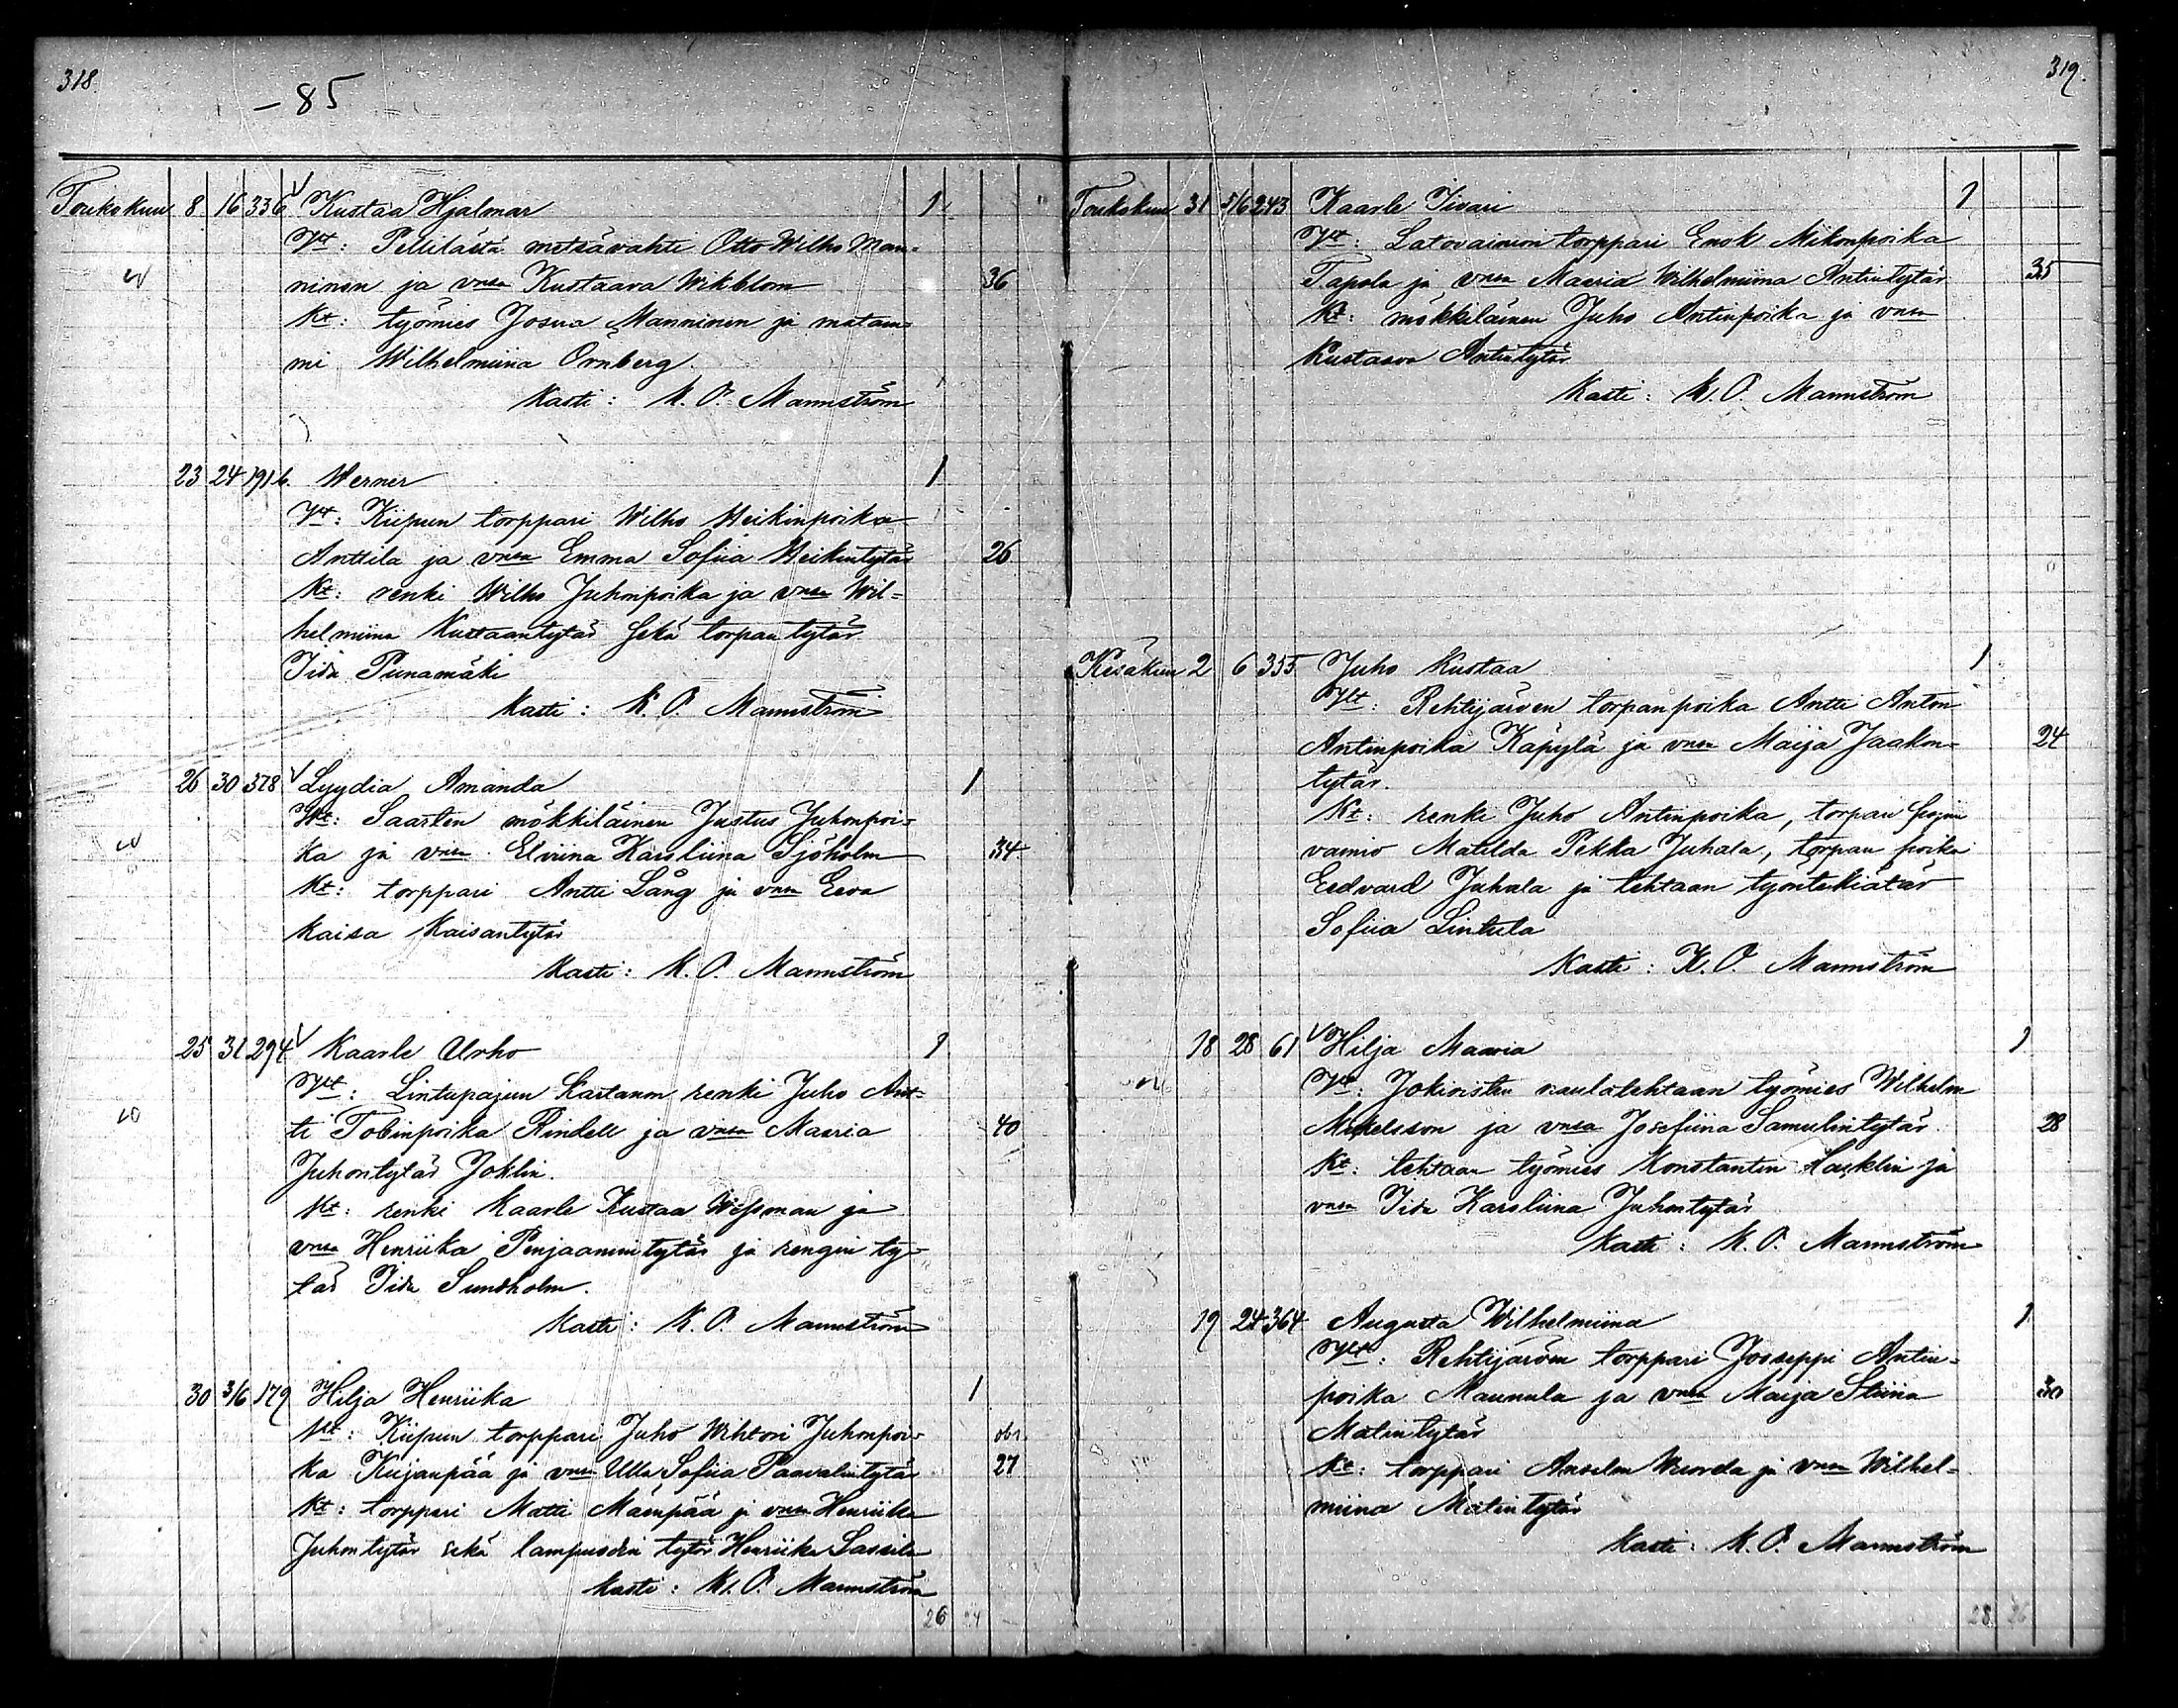 318.
- 85
Toukokuu 8 16 336 Kustaa Hjalmar 1
Vt: Pellilästä metsävahti Otto Wilho Man-
ninen ja vmsa Kustaava Wikblom 36
Kt: työmies Josua Manninen ja matam-
mi Wilhelmiina Örnberg.
Kasti: K. O. Mannström
23 24 191 b. Werner 1
Vt: Kiipun torppari Wilho Heikinpoika
Anttila ja vmsa Emma Sofiia Heikintytär 26
Kt: renki Wilho Juhonpoika ja vmsa Wil=
helmiina Kustaantytär sekä torpan tytär
Iida Punamäki
Kasti: K. O. Mannström
26 30 378 Lyydia Amanda 1
Vt: Saarten mökkiläinen Justus Juhonpoi-
ka ja vmsa Elviina Karoliina Sjöholm 34
Kt: torppari Antti Lång ja vmsa Eeva
Kaisa Kaisantytär
Kasti: K. O. Mannström
25 31 294 Kaarle Urho 1
Vt: Lintupajun Kartanon renki Juho Ant-
ti Tobinpoika Rindell ja vmsa Maaria 40
Juhontytär Joklin.
Kt: renki Kaarle Kustaa Wessman ja
vmsa Henriika Penjaamintytär ja rengin ty-
tär Iida Sundholm.
Kasti: K. O. Mannström
30 3/6 179 Hilja Henriika 1
Vt: Kiipun torppari Juho Wihtori Juhonpoi-
ka Kujanpää ja vmsa Ulla Sofiia Paavalintytär 27
Kt: torppari Matti Mäenpää ja vmsa Henriika
Juhontytär sekä lampuodin tytär Henriika Lassila
Kasti: K. O. Mannström
26 24
319.
Toukokuu 31 5/6 243 Kaarle Iivari 1
Vt: Latovainion torppari Enok Mikonpoika
Tapola ja vmsa Maaria Wilhelmiina Antintytär 35
Kt: mökkiläinen Juho Antinpoika ja vmsa
Kustaava Antintytär
Kasti: K. O. Mannström
Kesäkuu 2 6 355 Juho Kustaa 1
Vt: Rehtijärven torpanpoika Antti Anton
Antinpoika Käpylä ja vmsa Maija Jaakon- 24
tytär.
Kt: renki Juho Antinpoika, torpan
vainio Matilda Pekka Juhala, torpan poika
Eedvard Juhala ja tehtaan työntekiätär
Sofiia Lintula
Kasti: K. O. Mannström
18 28 61 Hilja Maaria 1
Vt: Jokioisten naulatehtaan työmies Wilhelm
Mikelsson ja vmsa Josefiina Samulintytär 28
Kt: tehtaan työmies Konstantin ja
vmsa Iida Karoliina Juhontytär
Kasti: K. O. Mannström
19 24 364 Augusta Wilhelmiina 1
Vt: Rehtijärven torppari Jooseppi Antin-
poika Maunula ja vmsa Maija Stiina 30
Matintytär
Kt: torppari Anselm Wuorela ja vmsa Wilhel-
miina Matintytär
Kasti: K. O. Mannström
28 26